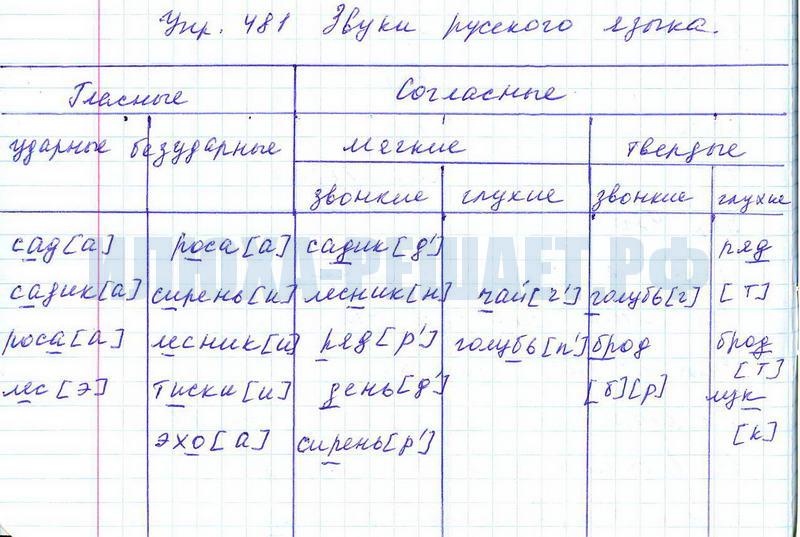 Упр. 481 Звуки русского языка.
Гласные Согласные
ударные безударные мягкие твердые
звонкие глухие звонкие глухие
сад [а] роса [а] садик [д'] ряд
садик [а] сирень [и] лесник [н] чай [ч'] голубь [г] [т]
роса [а] лесник [и] ряд [р'] голубь [п'] брод брод
[т]
лес [э] тиски [и] день [д'] [б] [р] лук
эхо [а] сирень [р'] [к]
ПИНІХА-РЕШАЕТ.РФ